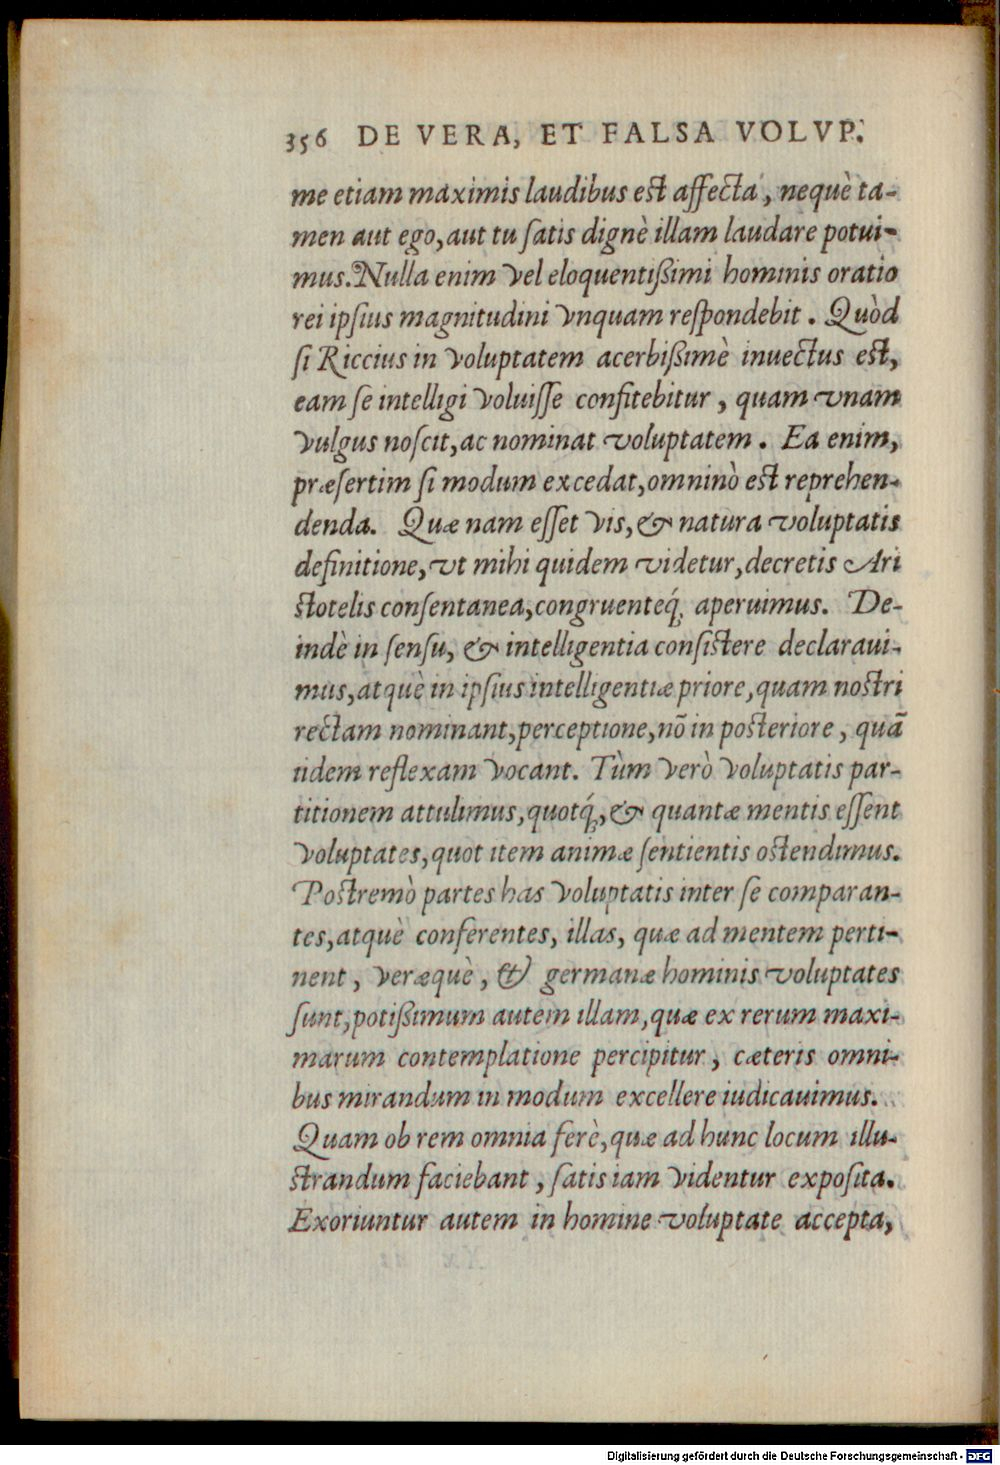 356 DE VERA, ET FALSA VOLVP.
me etiam maximis laudibus est affecta, nequè ta-
men aut ego, aut tu ſatis dignè illam laudare potui-
mus. Nulla enim vel eloquentißimi hominis oratio
rei ipſius magnitudini vnquam reſpondebit. Quòd
ſi Riccius in voluptatem acerbißimè inuectus est,
eam ſe intelligi voluiſſe confitebitur, quam vnam
vulgus noſcit, ac nominat voluptatem. Ea enim,
præſertim ſi modum excedat, omninò est reprehen-
denda. Quæ nam eſſet vis, & natura voluptatis
definitione, vt mihi quidem videtur, decretis Ari
stotelis conſentanea, congruenteq́; aperuimus. De-
indè in ſenſu, & intelligentia conſistere declaraui-
mus, atquè in ipſius intelligentiæ priore, quam nostri
rectam nominant, perceptione, nō in posteriore, quā
iidem reflexam vocant. Tùm verò voluptatis par-
titionem attulimus, quotq́;, & quantæ mentis eſſent
voluptates, quot item animæ ſentientis ostendimus.
Postremò partes has voluptatis inter ſe comparan-
tes, atquè conferentes, illas, quæ ad mentem perti-
nent, veræquè, & germanæ hominis voluptates
ſunt, potißimum autem illam, quæ ex rerum maxi-
marum contemplatione percipitur, cæteris omni-
bus mirandum in modum excellere iudicauimus.
Quam ob rem omnia ferè, quæ ad hunc locum illu-
strandum faciebant, ſatis iam videntur expoſita.
Exoriuntur autem in homine voluptate accepta,
Digitalisierung gefördert durch die Deutsche Forschungsgemeinschaft - DFG